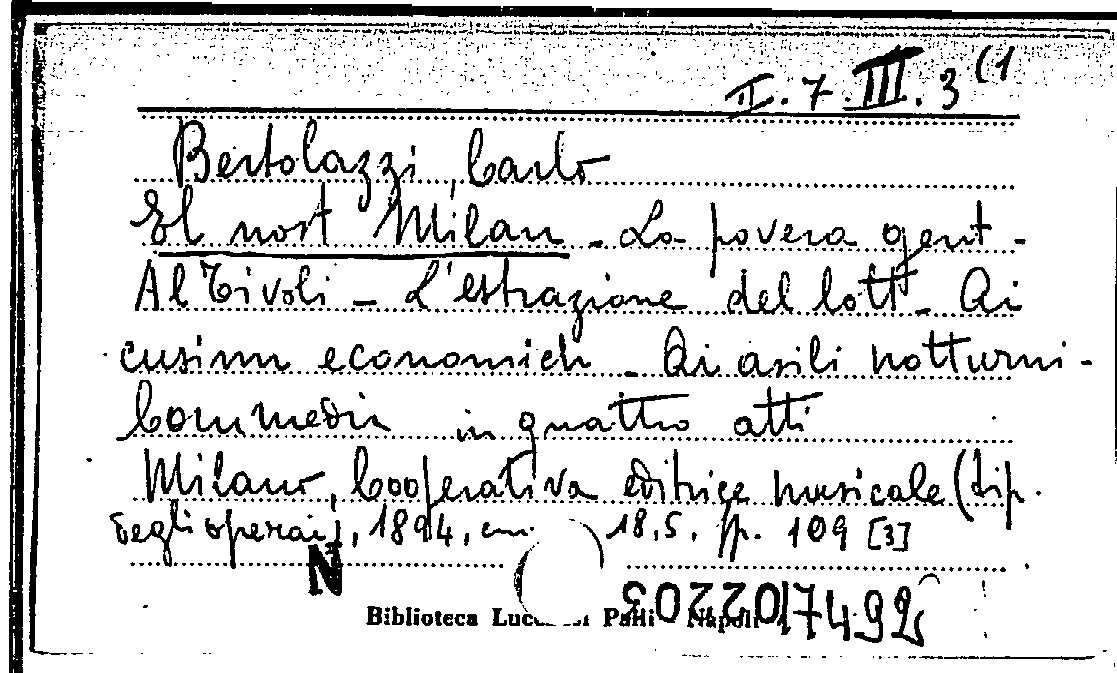 II. 7. III. 3 (1
Bertolazzi, Carlo
El nost Milan - La povera gent -
Al Tivoli - L'estrazione del lott - Ai
cusinn economich - Ai asili notturni -
Commedia in quattro atti
Milano, Cooperativa editrice musicale (tip.
degli operai), 1894, cm. 18,5. pp. 109 [3]
N
Biblioteca Napoli